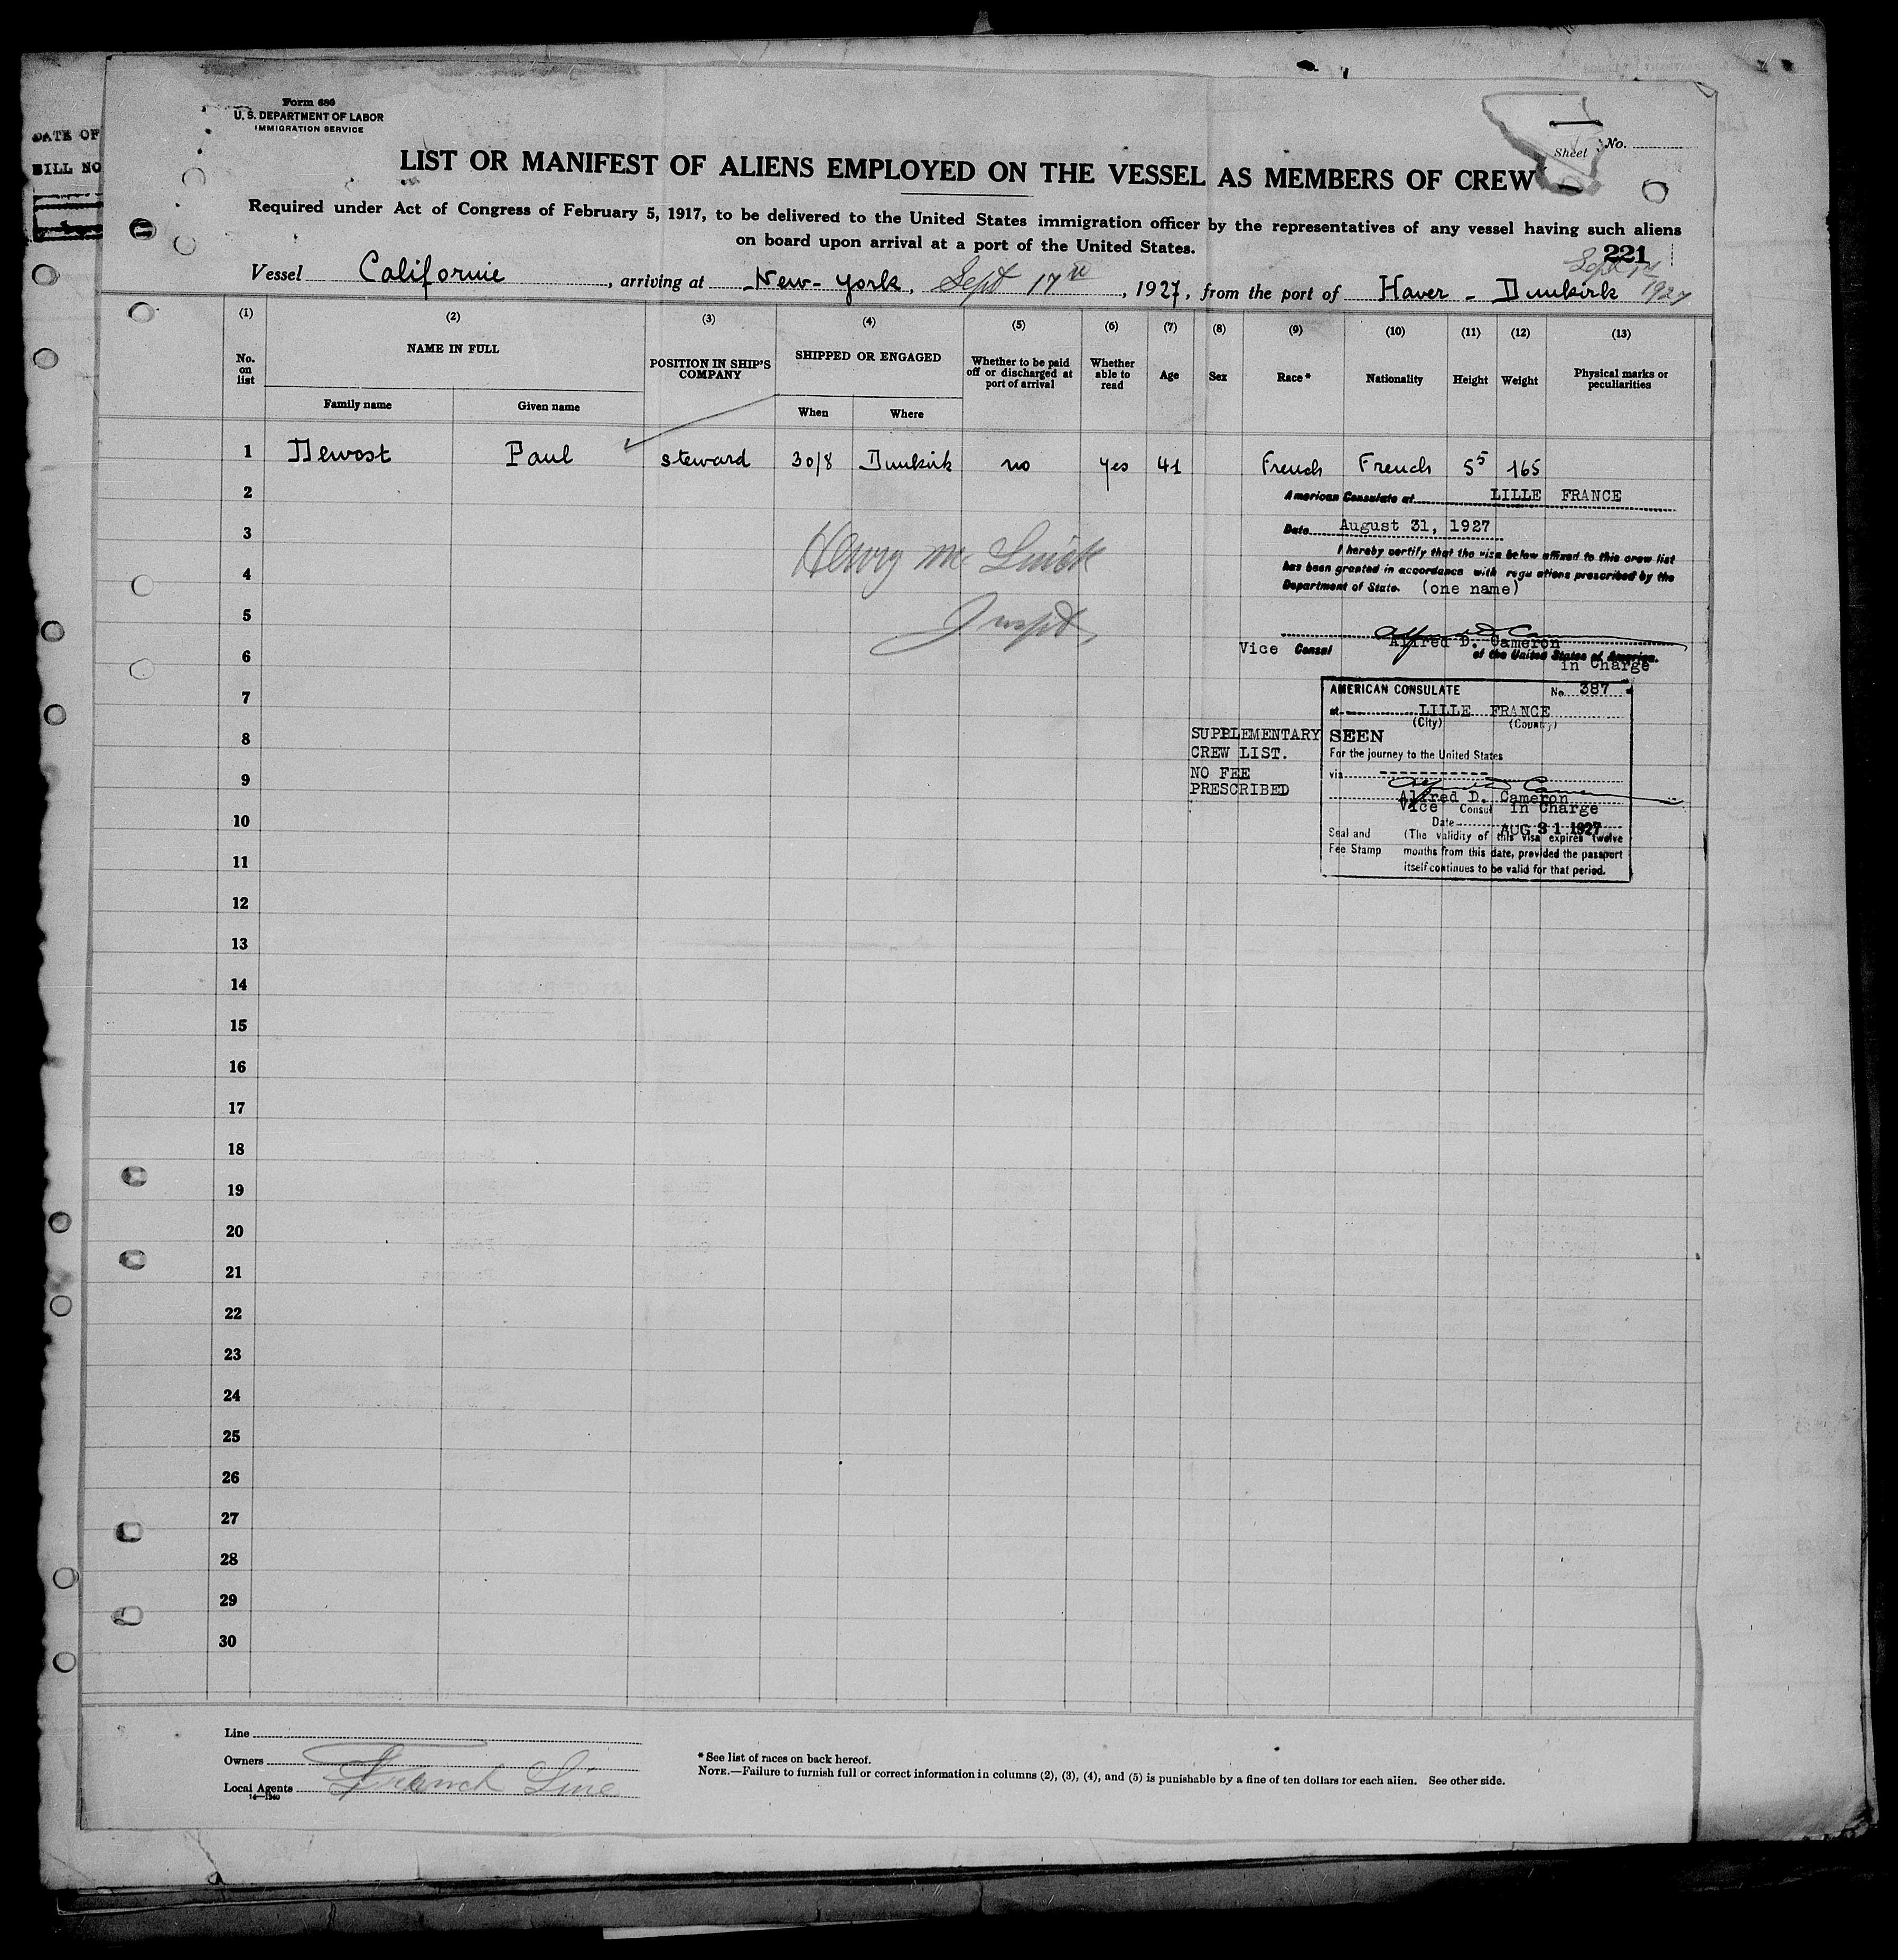 DATE OF
BILL NO
Form 680
U. S. DEPARTMENT OF LABOR
IMMIGRATION SERVICE
Sheet No.
LIST OR MANIFEST OF ALIENS EMPLOYED ON THE VESSEL AS MEMBERS OF CREW
Required under Act of Congress of February 5, 1917, to be delivered to the United States immigration officer by the representatives of any vessel having such aliens
on board upon arrival at a port of the United States.
221
Vessel Californie, arriving at New-York, Sept 17th, 1927, from the port of Haver - Dunkirk
Sept 17 1927
(1) (2) (3) (4) (5) (6) (7) (8) (9) (10) (11) (12) (13)
No. on list
NAME IN FULL
Family name
Given name
POSITION IN SHIP'S COMPANY
SHIPPED OR ENGAGED
When
Where
Whether to be paid off or discharged at port of arrival
Whether able to read
Age
Sex
Race*
Nationality
Height
Weight
Physical marks or peculiarities
1 Dewost Paul steward 30/8 Dunkirk no yes 41 French French 5 5 165
2
American Consulate at LILLE FRANCE
3
Date August 31, 1927
I hereby certify that the visa below affixed to this crew list
4
has been granted in accordance with regulations prescribed by the
Department of State. (one name)
Henry Mc
Inspt.
5
6
Alfred D. Cameron
Vice Consul of the United States of America.
in Charge
7
AMERICAN CONSULATE No. 387
at LILLE FRANCE
(City) (Country)
8
SUPPLEMENTARY
CREW LIST.
NO FEE
PRESCRIBED
SEEN
For the journey to the United States
9
via
Alfred D. Cameron
Vice Consul in Charge
10
Date AUG 31 1927
Seal and
Fee Stamp
(The validity of this visa expires twelve
months from this date, provided the passport
itself continues to be valid for that period.
11
12
13
14
15
16
17
18
19
20
21
22
23
24
25
26
27
28
29
30
Line
Owners
Local Agents French Line
14—1240
* See list of races on back hereof.
NOTE.—Failure to furnish full or correct information in columns (2), (3), (4), and (5) is punishable by a fine of ten dollars for each alien. See other side.